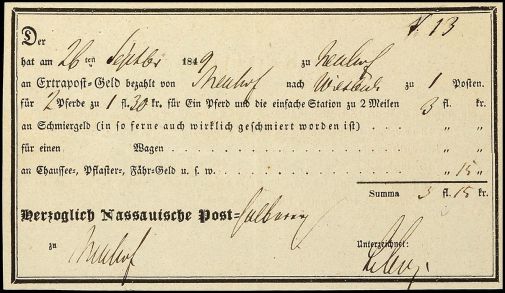 № 13
Der
hat am 26ten Septbr 1849 zu Neuhof
an Extrapost-Geld bezahlt von Neuhof nach Wiesbade zu 1 Posten.
für 2 Pferde zu 1 fl. 30 kr. für Ein Pferd und die einfache Station zu 2 Meilen 3 fl. kr.
an Schmiergeld (in so ferne auch wirklich geschmiert worden ist) . . . . . . . „ „
für einen Wagen . . . . . . . . . . . . . . „ „
an Chaussee-, Pflaster-, Fähr-Geld u. s. w. . . . . . . . . . . . . . „ 15 „
Summa 3 fl. 15 kr.
Herzoglich Nassauische Post-
zu Neuhof
Unterzeichnet: